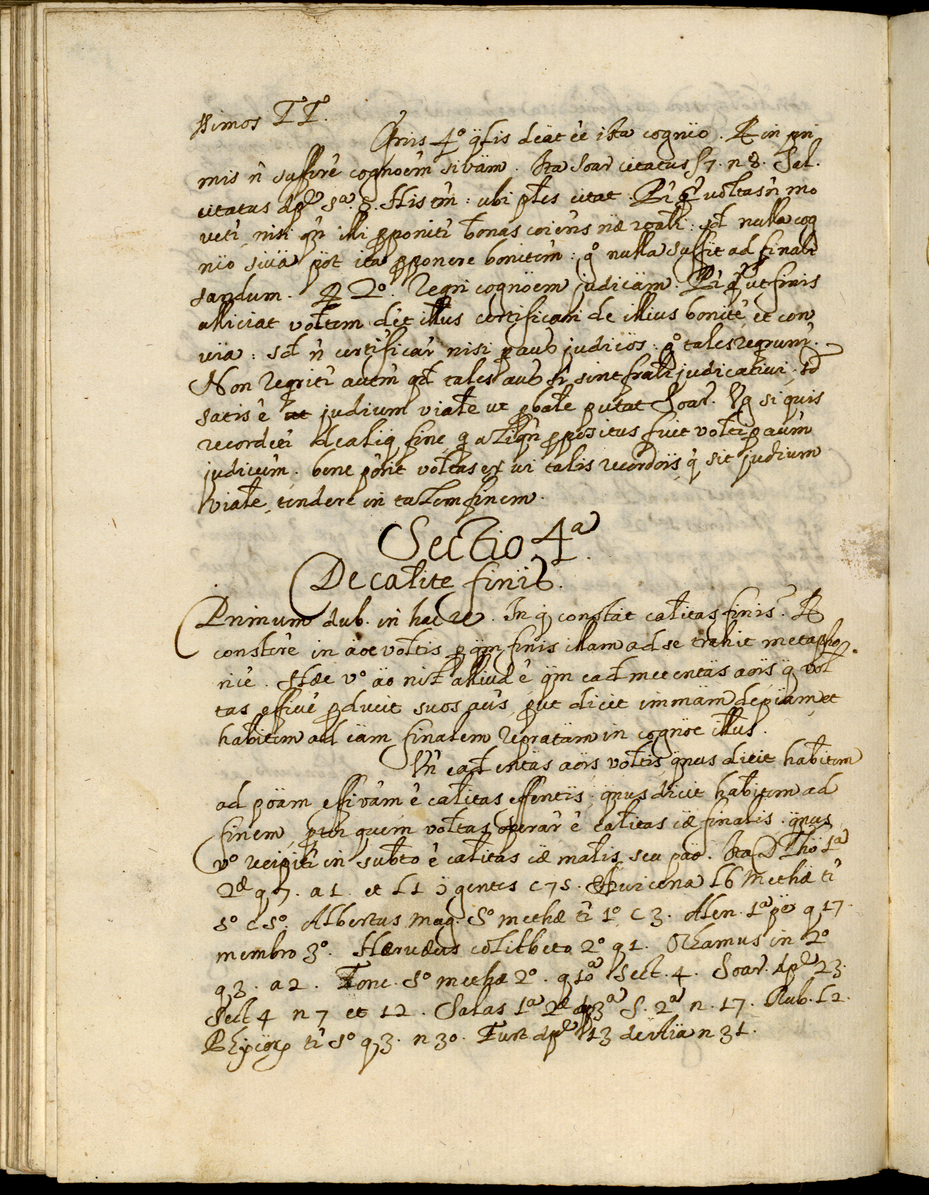 ssimos TT.
Qnis 4º qlis debeat ee ista cognio. R in pri
mis n suffire cognoem sivam. Ita Soar citatus § 7. n 8. Sal.
citatus dp. S.ª 8. His tn: ubi ples citat. Pr q voltas n mo
vetr nisi qn illi proponitr bonas coiens næ roali: sd nulla cog
nio siva pot ita proponere bonitem: gº nulla suffit ad finali
sandum. R 2º. Reqri cognoem judicām. Pr q ut finis
alliciat voltem det illus certificari de illius bonite, et con
via: sd n certificar nisi p aus judicios: gº tales reqrunr.
Non reqritr autm qd tales aus sr sint frali judicativi, sd
satis e judium viale ut pbale putat Soar. Vg si quis
recordetr de aliq fine q aliqn propositus fuit volti p aum
judicum. bene porit voltas ex vi talis recordois q sit judium
viale, tendere in talem finem.
Sectio 4ª
De calite finis.
Primum dub. in hac re. In q constat calitas finis. R
constere in aoe voltis p qm finis illam ad se trahit metapho
rice. Hæc vº ao nil aliud e qm ead met entas aois q vol
tas effive producit suos aus, put dicit immam depiam et
habitem ad cam finalem repratam in cognoe illus.
Un ead entas aois voltis qnus dicit habitem
ad poam effivam e calitas effentis. qnus dicit habitem ad
finem, ptr quem voltas operar e calitas cæ finalis. qnus
vº recipitr in subto e calitas cæ malis seu pao. Ita D Tho 1ª
2æ q 7. a 1. et L 1 ꝯ gentes c 75. Avicena L 6 Methæ tr
5º c 5º. Albertus mag. 5º methæ tr 1º c 3. Alen. 1ª pe q 17.
membro 3º. Hervæus colibeto 2º q 1. Ochamus in 2º
q 3. a 2. Fonc. 5º methæ 2º. q 10ª Sect. 4. Soar. dp 23.
Sect 4 n 7 et 12. Salas 1ª 2æ 3ª S. 2ª n. 17. Rub. L 2.
Physicor tr 5º q 3. n 30. Tur dp 13 n 31.